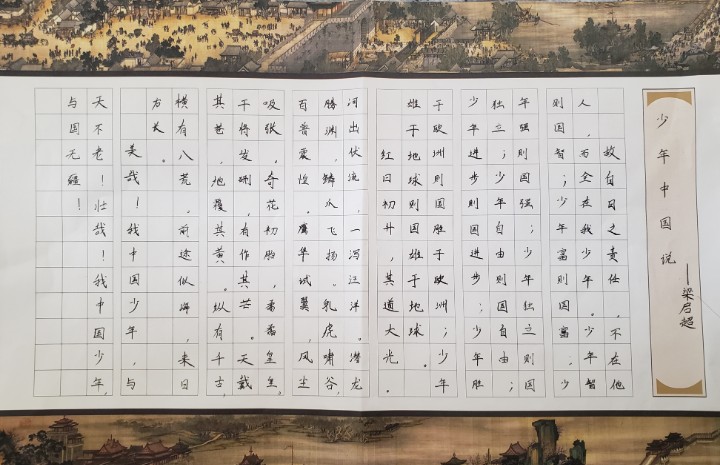 少年中国说
——梁启超
故自日之责任，不在他
人，而全在我少年。少年智
则国智；少年富则国富；少
年强则国强；少年独立则国
独立；少年自由则国自由；
少年进步则国进步；少年胜
于欧洲则国胜于欧洲；少年
雄于地球则国雄于地球。
红日初升，其道大光。
河出伏流，一泻汪洋。潜龙
腾渊，鳞爪飞扬。乳虎啸谷，
百兽震惶。鹰隼试翼，风尘
吸张。奇花初胎，矞矞皇皇。
干将发硎，有作其芒。天戴
其苍，地履其黄。纵有千古，
横有八荒。前途似海，来日
方长。
美哉！我中国少年，与
天不老！壮哉！我中国少年，
与国无疆！